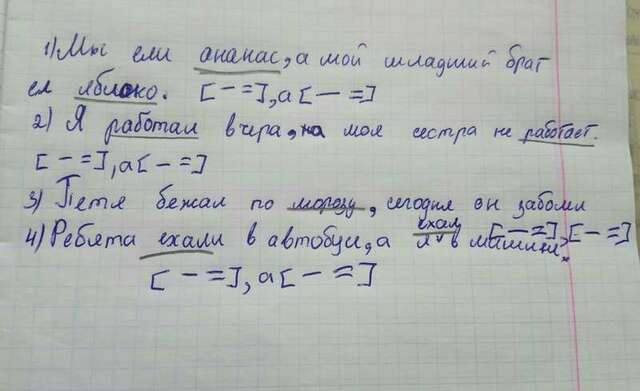 1) Мы ели ананас, а мой младший брат
ел яблоко. [– =], а [– =]
2) Я работал вчера, но моя сестра не работает.
[– =], а [– =]
3) Петя бежал по морозу, сегодня он заболи
4) Ребята ехали в автобусе, а я ехал в машине. [– =], [– =]
[– =], а [– =]